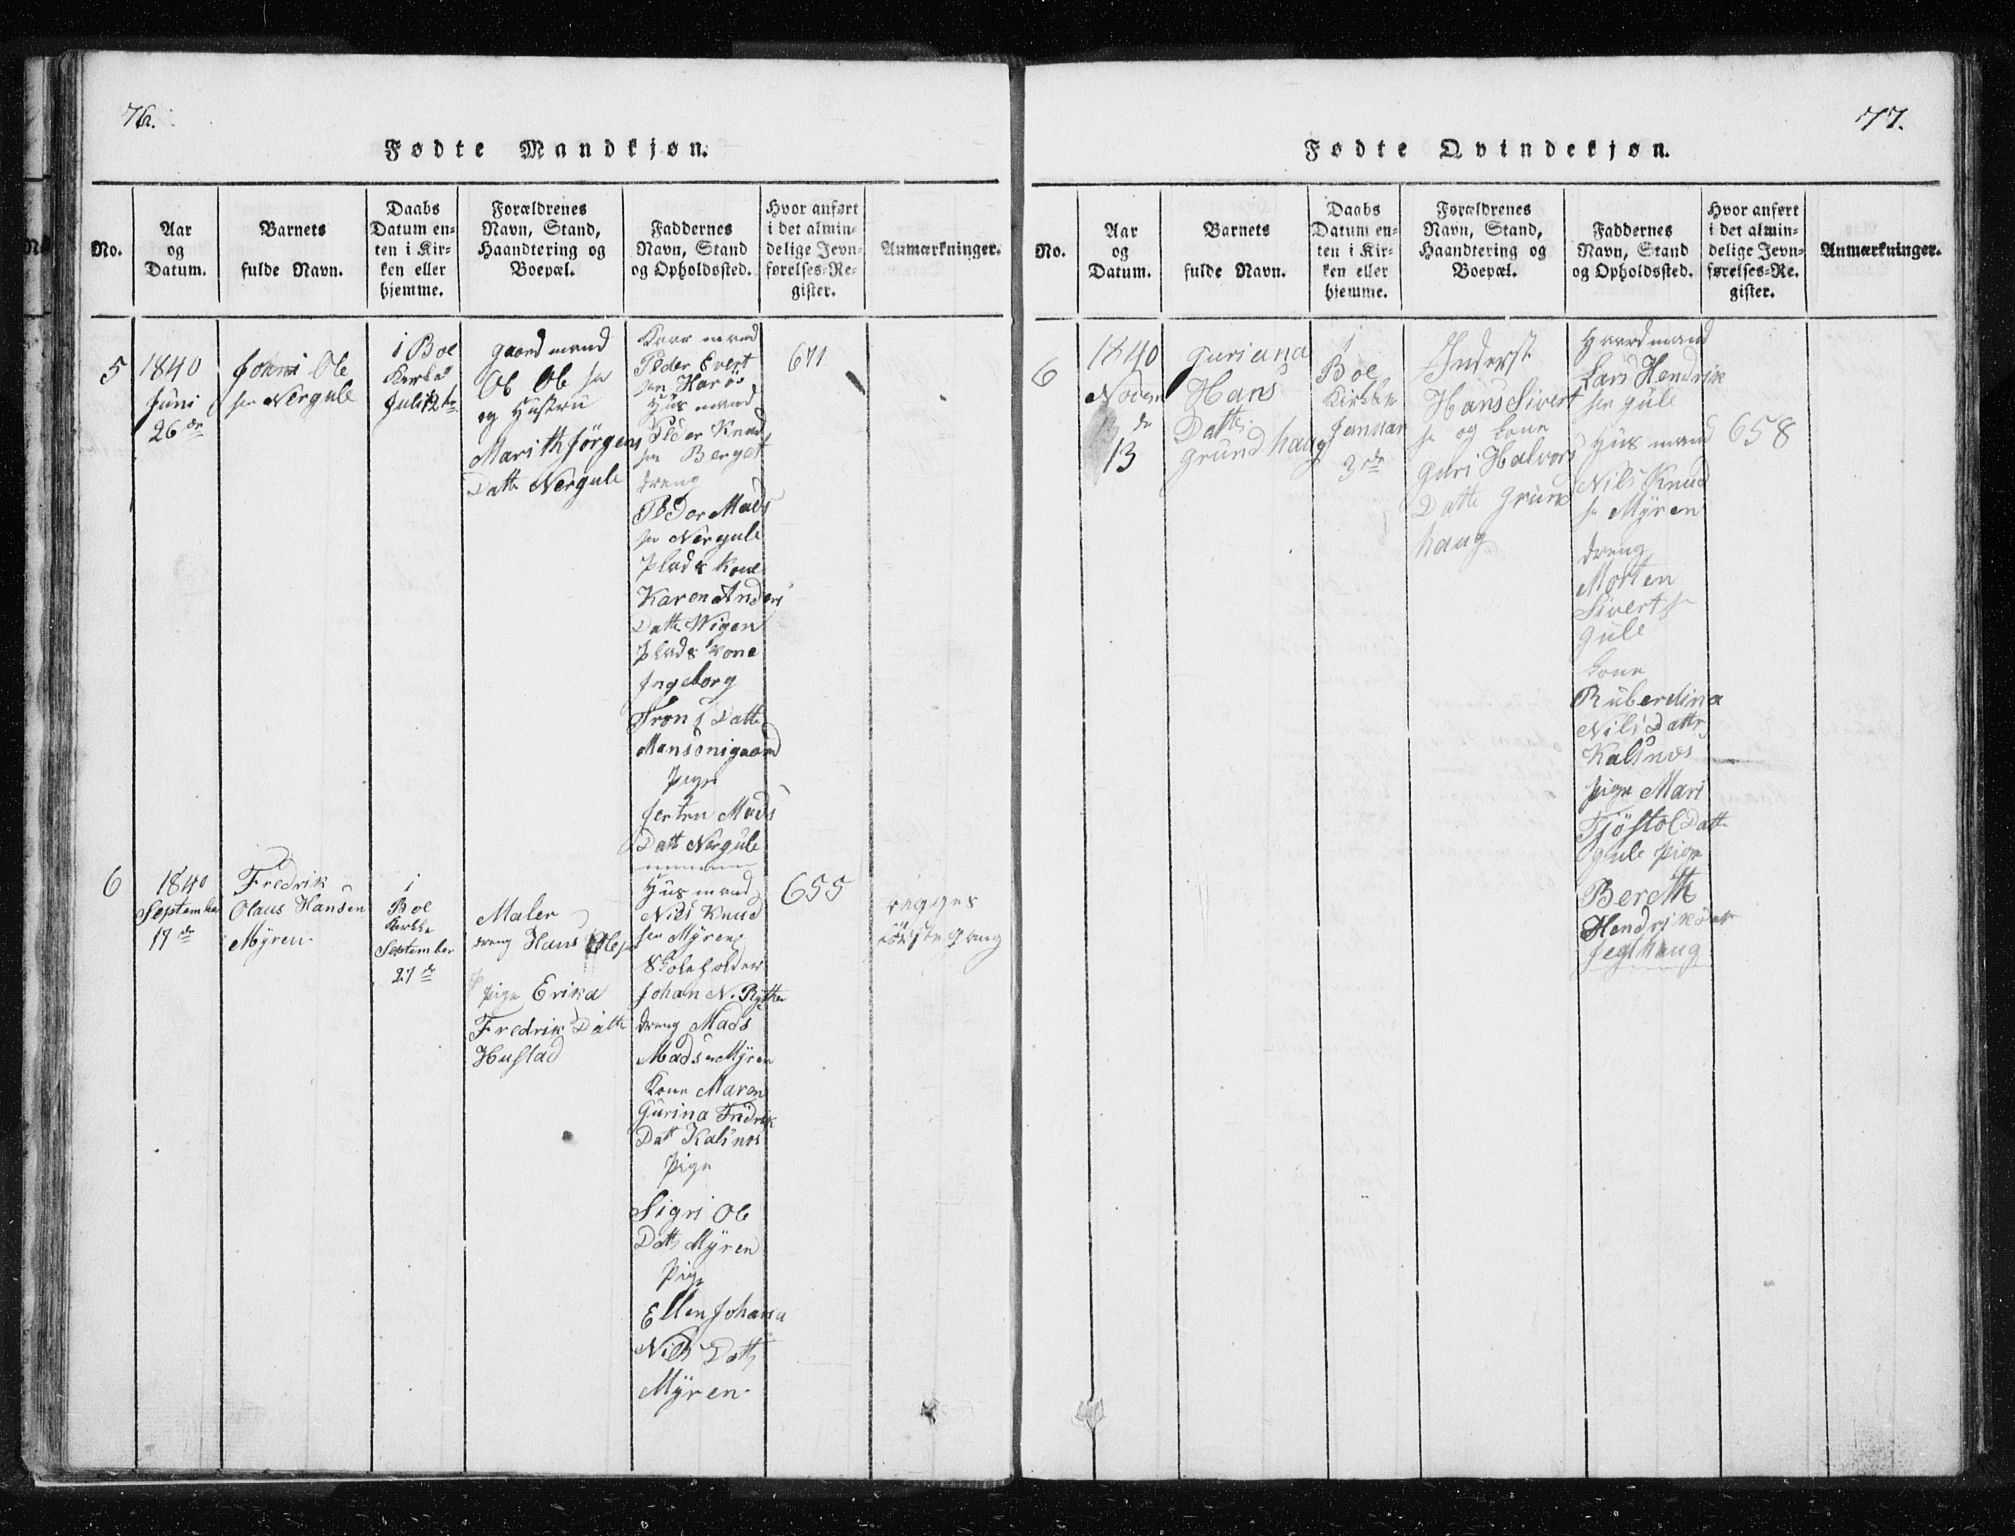 76.
Fødte Mandkjøn.
No.
Aar
og
Datum.
Barnets
fulde Navn.
Daabs
Datum en-
ten i Kir-
ken eller
hjemme.
Forældrenes
Navn, Stand,
Haandtering og
Boepæl.
Faddernes
Navn, Stand
og Opholdssted.
Hvor anført
i det almin-
delige Jevn-
førelses-Re-
gister.
Anmærkninger.
5
1840
Juni
26de
Ole
sen Nergule
i Boe
Kirke
Juli 12te
gaard mand
Ole Ole sen
og Hustru
Marith Jörgens
Datte Nergule
Kaar mand
Peder Evert
sen
Hus mand
Peder Knud
sen Berget
dreng
Peder Mads
sen Nergule
Plads kone
Karen Anders
Datte Wigen
Plads kone
Ingeborg
Trons Datte
Pige
Mads
Datt Nergule
671
6
1840
September
17de
Fredrik
Olaus Hansen
Myren
i
Boe
Kirke
September
27de
Maler
dreng Hans Ole
pige Erika
Fredrik Datte
Hustad
Hus mand
Nils Knud
sen Myren
Skoleholder
Johan N. Rytter
dreng Mads
Mads en Myren
Kone Maren
Gurina Fridrik
Datt Kalsnes
Pige
Sigri Ole
Datt Myren
Pige
Ellen Johana
Nils Datt
Myren
655
begges
første gang
77.
Fødte Qvindekjøn.
No.
Aar
og
Datum.
Barnets
fulde Navn.
Daabs
Datum en-
ten i Kir-
ken eller
hjemme.
Forældrenes
Navn, Stand,
Haandtering og
Boepæl.
Faddernes
Navn, Stand
og Opholdssted.
Hvor anført
i det almin-
delige Jevn-
førelses-Re-
gister.
Anmærkninger.
6
1840
Novem
de
13
Guriana
Hans
Datte
Grund haug
i
Boe
Kirke
Januar
3de
Inderst
Hans Sivert
sen og kone
Guri Halvors
Datte Grund
haug
Lars Hendrik
sen Gule
Hus mand
Nils Knud
sen Myren
dreng
Morten
Sivert sen
Gule
kone
Ruberdina
Nils Datte
Kalsnes
pige Mari
Tjöstol Datte
Gule pige
Bereth
658